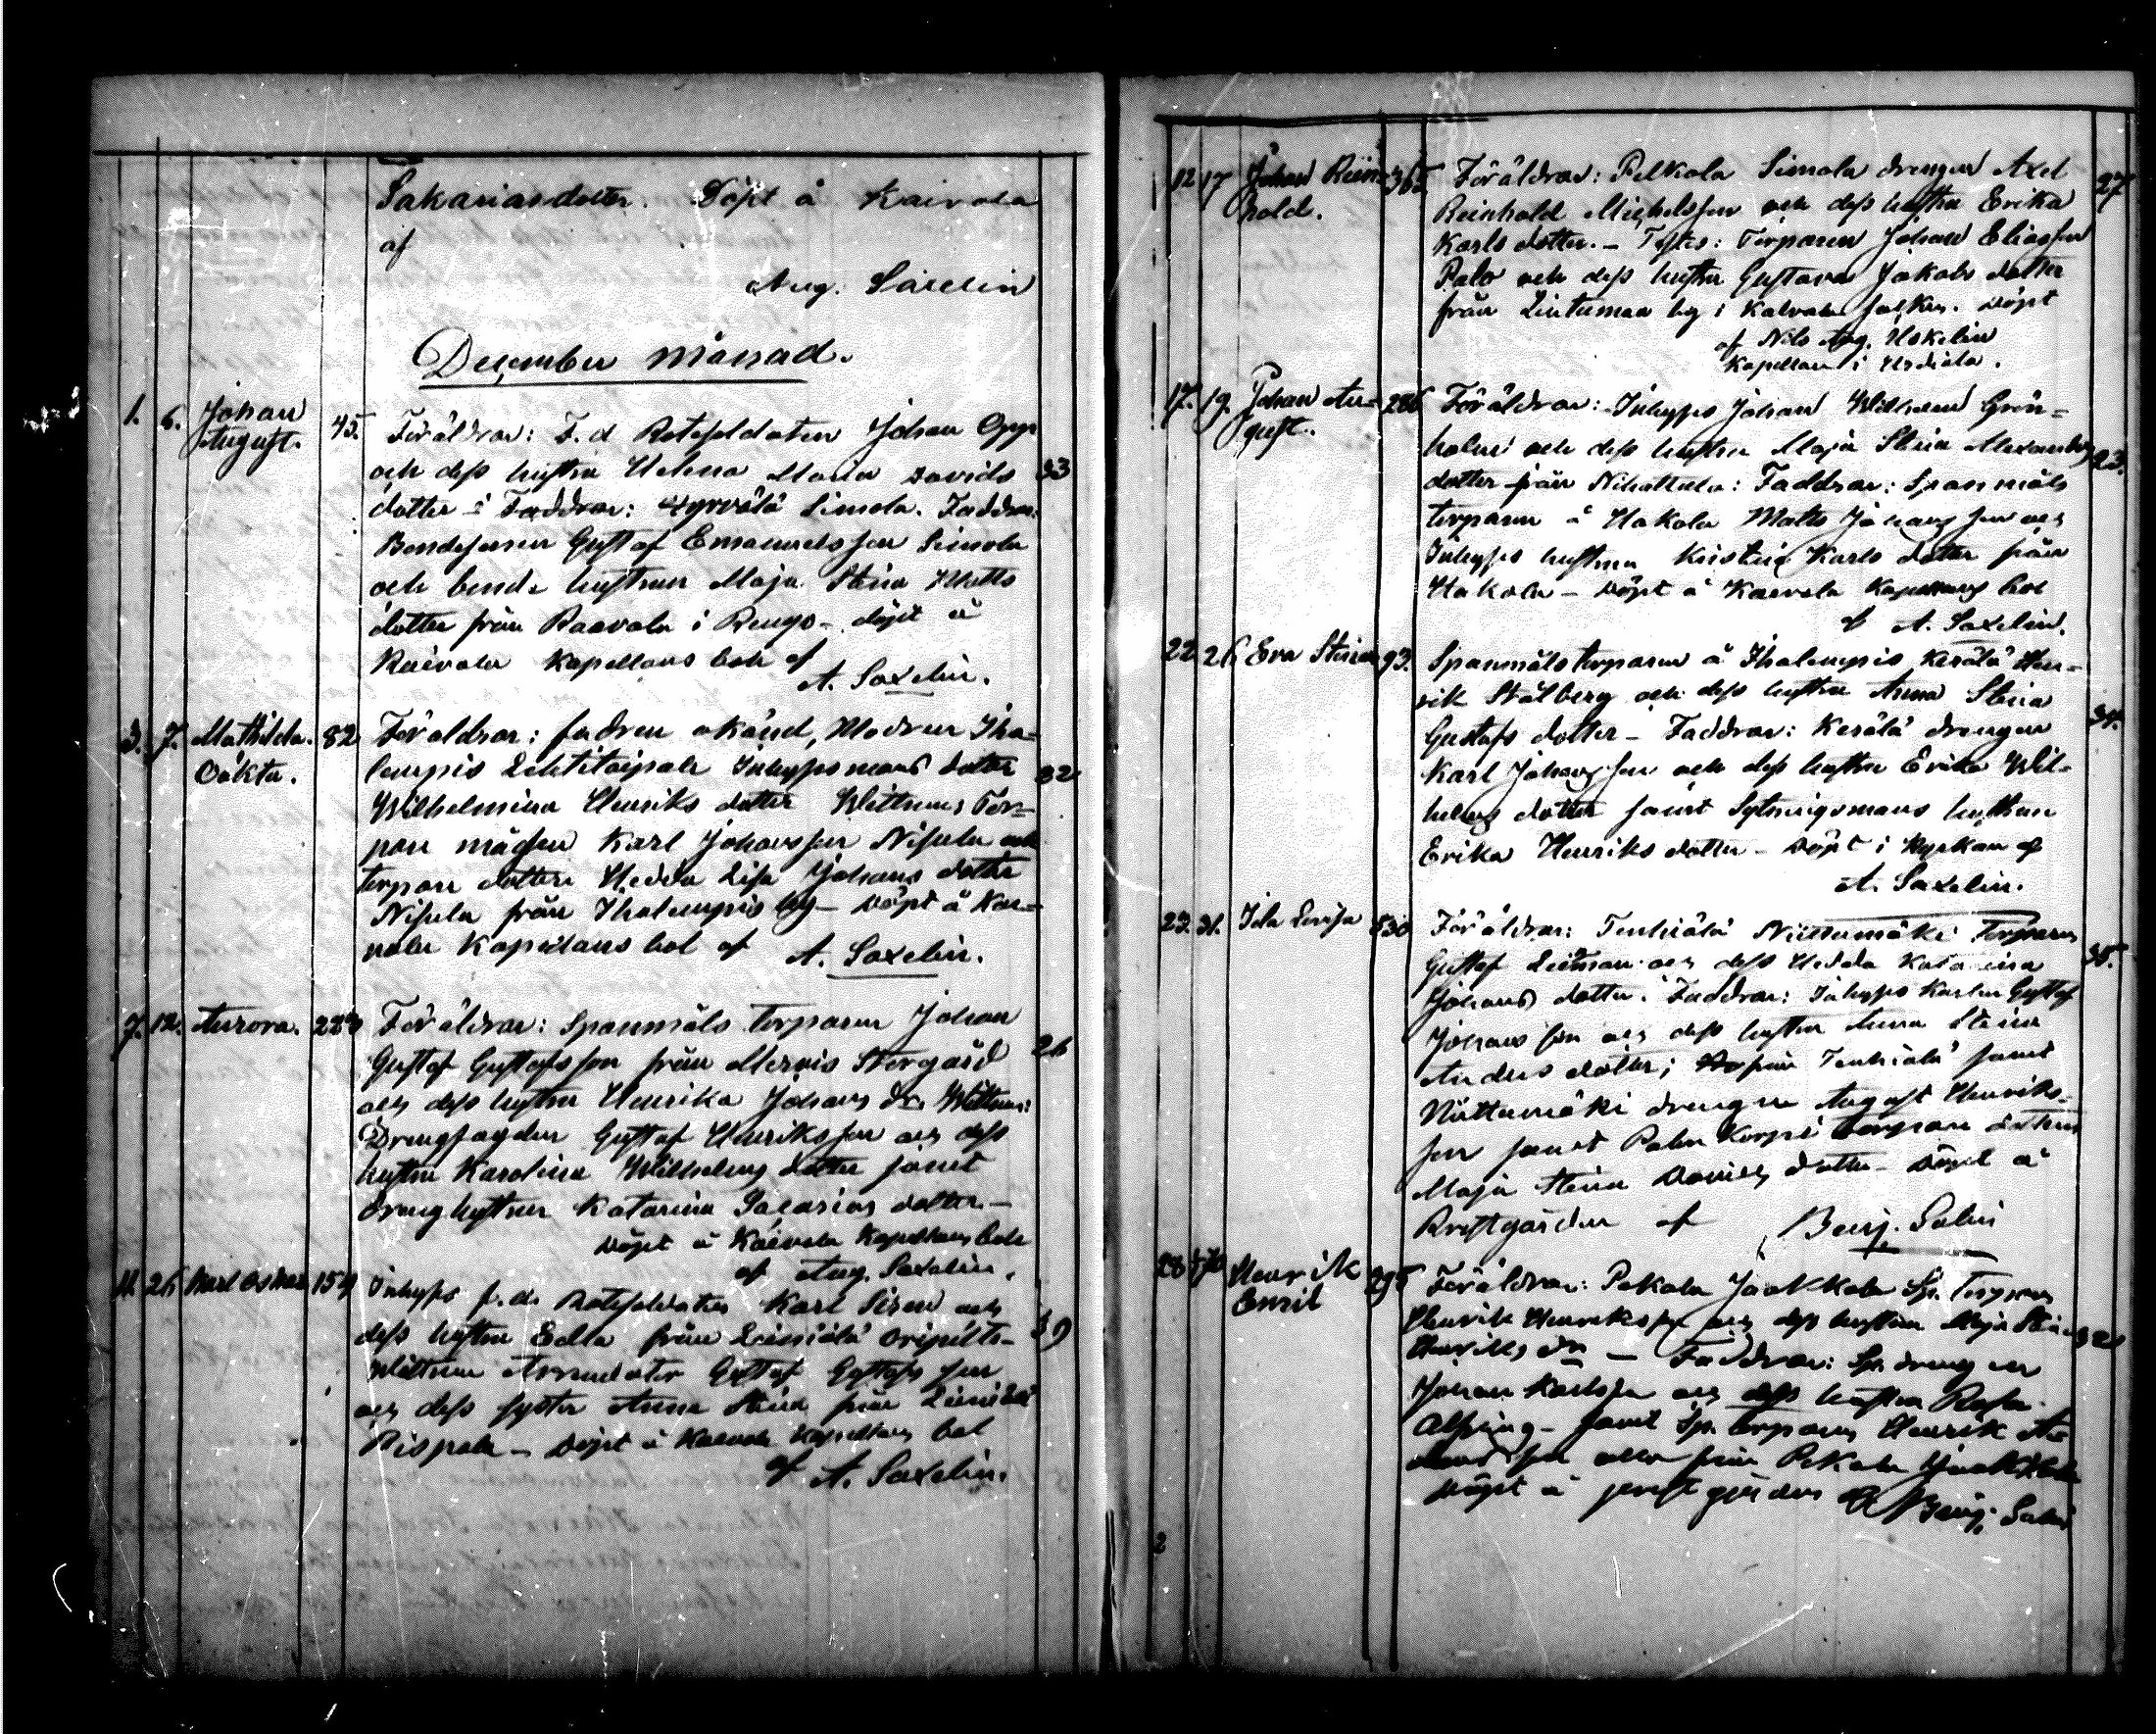 Sakariasdotter. Döpt å Kaivola
af
Aug. Saxelin
December månad.
1. 6. Johan August. 45. Föräldrar: F. d Rotesoldaten Johan Opp
och dess hustru Helena Maria Davids 33
dotter i Faddrar: Hyrvälä Simola. Faddrar:
Bondesonen Gustaf Emanuelsson Simola
och bonde hustrun Maja Stina Matts
dotter från Raavola i Rengo - döpt å
Kaivola Kapellans bole af
A. Saxelin.
3. 7. Mathilda Oäkta. 82 Föräldrar: fadren okänd, Modren Iha-
lempis Lehtitaipale Inhysesmans dotter 32
Wilhelmina Henriks dotter Wittnen; Tor-
pare mågen Karl Johansson Nisula och
torpare dottern Hedda Lisa Johans dotter
Nisula från Ihalempis by - Döpt å Kai-
vola Kapellans bol af A. Saxelin.
7. 12. Aurora. 224 Föräldrar: Spannmåls torparen Johan
Gustaf Gustafsson från Mervis Storgård 26
och dess hustru Henrika Johans dr. Wittnen:
Drengfogden Gustaf Henriksson och dess
hustru Karolina Wilhelms dotter samt
dreng hustrun Katarina Sacarias dotter. -
Döpt å Kaivola Kapellans bole
af Aug. Saxelin.
11. 26 Karl Oskar 154 Inhyses f. d. Rotesoldaten Karl Siren och
dess hustru Edla från Leiniälä 39
Wittnen Arrendator Gustaf Gustafs son
och dess syster Anna Stina från Leiniälä
Rispala - Döpt å Kaivola Kapellans bol
af A. Saxelin.
12 17 Johan Reinhold. 365 Föräldrar: Pelkola Simola drengen Axel 27
Reinhold Michelsson och dess hustru Erika
Karls dotter. - Testes: Torparen Johan Eliasson
Palo och dess hustru Gustava Jakobs dotter
från Lintumaa by i Kalvola socken. Döpt
af Nils Aug. Hokelin
Kapellan i Urdiala.
17. 19. Johan August. 286 Föräldrar: Inhyses Johan Wilhelm Grön-
holm och dess hustru Maja Stina Alexanders 23.
dotter från Nihattula: Faddrar: Spannmåls
torparen å Hakola Matts Johansson och
Inhyses hustrun Kristina Karls dotter från
Hakola - Döpt å Kaivola Kapellans bol
af A. Saxelin.
22 26 Eva Stina 93. Spannmåls torparen å Ihalempis Kerälä Hen-
rik Stålberg och dess hustru Anna Stina
Gustafs dotter - Faddrar: Kerälä drengen 34.
Karl Johansson och dess hustru Erika Wil-
helms dotter samt Sytningsmans hustrun
Erika Henriks dotter - Döpt i Kyrkan af
A. Saxelin.
23. 31. Ida Lovisa 530 Föräldrar: Tenhiälä Niittumäki Torparen
Gustaf Leitman och dess Hedda Katarina 35.
Johans dotter. Faddrar: Inhyses Karlen Gustaf
Johans son och dess hustru Anna Stina
Anders dotter; från Tenhiälä samt
Niittumäki drengen August Henriks-
son samt Palen Korpi torpare dottern
Maja Stina Davids dotter - Döpt å
Prestgården af Benj. Salin
28 Henrik Emil 295 Föräldrar: Pekola Jaakkola Sp. Torparen
Henrik Henriksson och dess hustru Maja Stina 32
Henriks dr - Faddrar: Sp. drengen
Johan Karlsson och dess hustru Rosa
samt Sp. torparen Henrik
alla från Pekola Jaakkola
Döpt å prestgården af Benj. Salin
2